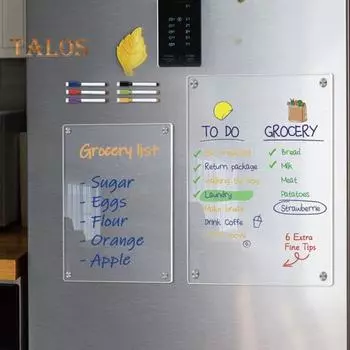 TALOS
Grocery list
- Sugar
- Eggs
- Flour
- Orange
- Apple
TO DO
Return package
Laundry
Drink Coffe
GROCERY
Bread
Milk
Meat
Patatoes
Strawberrie
6 Extra
Fine Tips